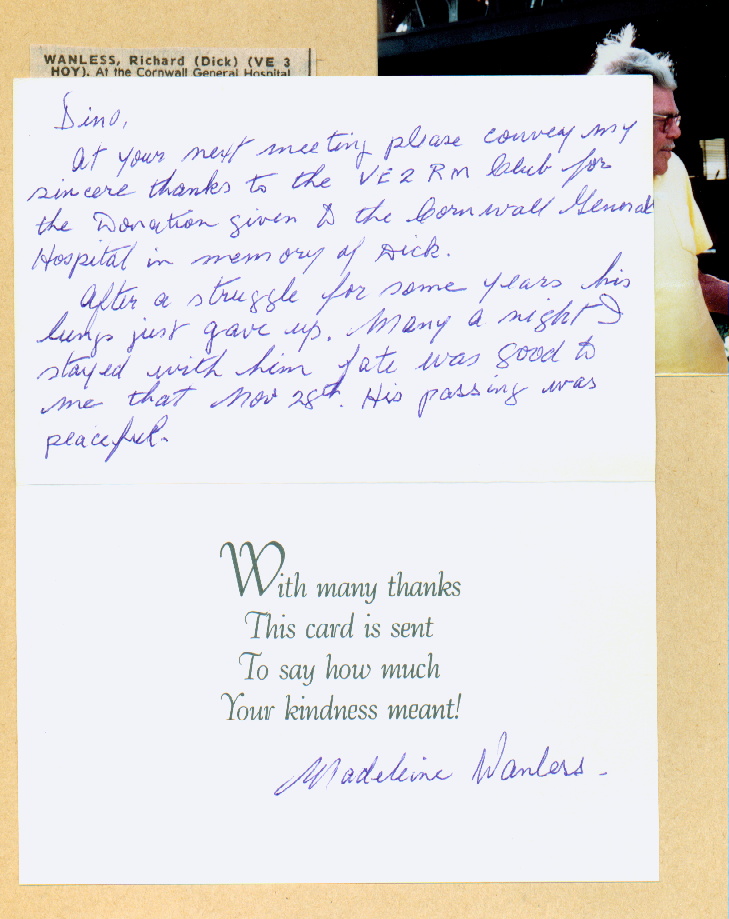 WANLESS, Richard (Dick) (VE 3
HOY). At the Cornwall General Hospital
Dino,
At your next meeting please convey my
sincere thanks to the VE2RM Club for
the Donation given to the Cornwall General
Hospital in memory of Dick.
After a struggle for some years his
lungs just gave up. Many a night I
stayed with him fate was good to
me that Nov 28th. His passing was
peaceful.
With many thanks
This card is sent
To say how much
Your kindness meant!
Madeleine Wanless.